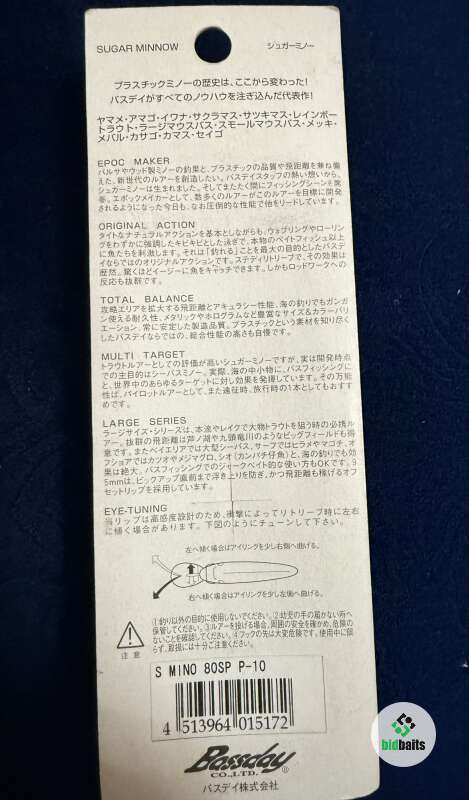 SUGAR MINNOW シュガーミノー
プラスチックミノーの歴史は、ここから変わった!
バスデイがすべてのノウハウを注ぎ込んだ代表作!
ヤマメ・アマゴ・イワナ・サクラマス・サツキマス・レインボー
トラウト・ラージマウスバス・スモールマウスバス・メッキ・
メバル・カサゴ・カマス・セイゴ
EPOC MAKER
バルサやウッド製ミノーの釣果と、プラスチックの品質や飛距離を兼ね備
えた、新世代のルアーを創造したい。バスデイスタッフの熱い想いから、
シュガーミノーは生まれました。そしてまたたく間にフィッシングシーンを席
巻。エポックメイカーとして、数多くのルアーがこのルアーを目標に開発
されるようになった今日も、なお圧倒的な性能で他をリードしています。
ORIGINAL ACTION
タイトなナチュラルアクションを基本としながらも、ウォブリングやローリン
グをわずかに強調したキビキビとした泳ぎで、本物のベイトフィッシュ以上
に魚たちを刺激します。それは「釣れる」ことを最大の目的としたバスデ
イならではのオリジナルアクションです。ステディリトリーブで、その効果は
歴然。驚くほどイージーに魚をキャッチできます。しかもロッドワークへの
反応も抜群です。
TOTAL BALANCE
攻略エリアを拡大する飛距離とアキュラシー性能、海の釣りでもガンガ
ン使える耐久性、メタリックやホログラムなど豊富なサイズ&カラーバリ
エーション、常に安定した製造品質。プラスチックという素材を知り尽く
したバスデイならではの、総合性能の高さも自慢です。
MULTI TARGET
トラウトルアーとしての評価が高いシュガーミノーですが、実は開発時点
での主目的はシーバスミノー。実際、海の中小物に、バスフィッシングに
と、世界中のあらゆるターゲットに対し効果を発揮しています。その万能
性は、パイロットルアーとして、また遠征時、旅行時の1本としてもおすす
めです。
LARGE SERIES
ラージサイズ・シリーズは、本流やレイクで大物トラウトを狙う時の必携ル
アー。抜群の飛距離は芦ノ湖や九頭竜川のようなビッグフィールドも得
意です。またベイエリアでは大型シーバス、サーフではヒラメやマゴチ、オ
フショアではカツオやメジマグロ、シオ(カンパチ仔魚)と、海の釣りでも効
果は絶大。バスフィッシングでのジャークベイト的な使い方もOKです。9
5mmは、ピックアップ直前まで浮き上がりを防ぎ、かつ飛距離も稼げるオフ
セットリップを採用しています。
EYE-TUNING
当リップは高感度設計のため、衝撃によってリトリーブ時に左右
に傾く場合があります。下図のようにチューンして下さい。
左へ傾く場合はアイリングを少し右側へ曲げる。
右へ傾く場合はアイリングを少し左側へ曲げる。
①釣り以外の目的に使用しないでください。②幼児の手の届かない所へ
保管してください。③ルアーを投げる場合、周囲の安全を確かめ、危険の
ないことを確認してください。④フックの先は大変危険です。使用中に限
らず、取扱には十分ご注意ください。
注意
S MINO 80SP P-10
4 513964 015172
Bassday ®
CO.,LTD.
バスデイ株式会社
bidbaits